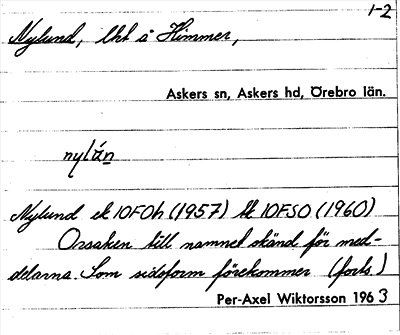 1-2
Nylund, lht å Himmer,
Askers sn, Askers hd, Örebro län.
nylán
Nylund ek 10F0h (1957) tk 10F50 (1960)
Orsaken till namnet okänd för med-
delarna. Som sidoform förekommer (forts.)
Per-Axel Wiktorsson 1963